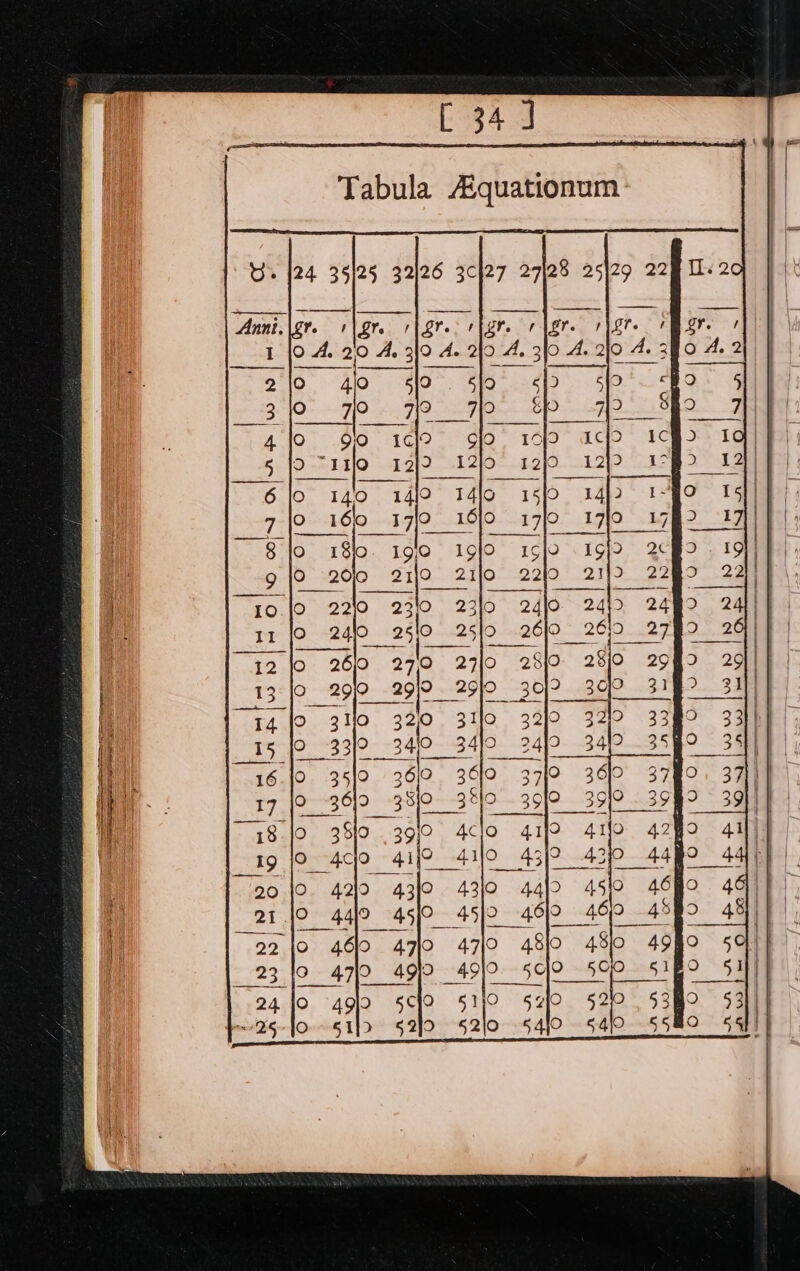 [ 34 ]
Tabula Æquationum
♉. 24 35 25 32 26 30 27 27 28 25 29 22 II. 20
Anni. gr. ' gr. ' gr. ' gr. ' gr. ' gr. ' gr. '
1 0 A. 2 0 A. 3 0 A. 2 0 A. 3 0 A. 2 0 A. 3 0 A. 2
2 0 4 0 5 0 5 0 5 0 5 0 0 5
3 0 7 0 7 0 7 0 8 0 7 0 8 0 7
4 0 9 0 10 0 9 0 10 0 10 0 10 0 10
5 0 11 0 12 0 12 0 12 0 12 0 0 12
6 0 14 0 14 0 14 0 15 0 14 0 0 15
7 0 16 0 17 0 16 0 17 0 17 0 17 0 17
8 0 18 0 19 0 19 0 19 0 19 0 20 0 19
9 0 20 0 21 0 21 0 22 0 21 0 22 0 22
10 0 22 0 23 0 23 0 24 0 24 0 24 0 24
11 0 24 0 25 0 25 0 26 0 26 0 27 0 26
12 0 26 0 27 0 27 0 28 0 28 0 29 0 29
13 0 29 0 29 0 29 0 30 0 30 0 31 0 31
14 0 31 0 32 0 31 0 32 0 32 0 33 0 33
15 0 33 0 34 0 34 0 34 0 34 0 35 0 35
16 0 35 0 36 0 36 0 37 0 36 0 37 0 37
17 0 36 0 38 0 38 0 39 0 39 0 39 0 39
18 0 38 0 39 0 40 0 41 0 41 0 42 0 41
19 0 40 0 41 0 41 0 43 0 43 0 44 0 44
20 0 42 0 43 0 43 0 44 0 45 0 46 0 46
21 0 44 0 45 0 45 0 46 0 46 0 48 0 48
22 0 46 0 47 0 47 0 48 0 48 0 49 0 50
23 0 47 0 49 0 49 0 50 0 50 0 51 0 51
24 0 49 0 50 0 51 0 52 0 52 0 53 0 53
25 0 51 0 52 0 52 0 54 0 54 0 55 0 55